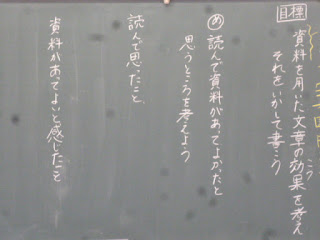 目標
資料を用いた文章の効果を考え
それをいかして書こう
め 読んで資料があってよかったと
思うところを考えよう
読んで思ったこと
資料があってよいと感じたこと